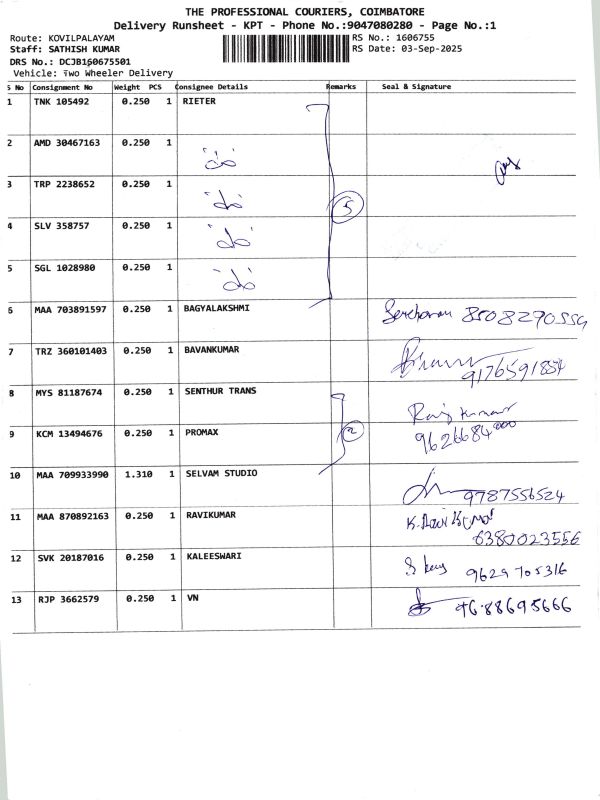 THE PROFESSIONAL COURIERS, COIMBATORE
Delivery Runsheet - KPT - Phone No.:9047080280 - Page No.:1
Route: KOVILPALAYAM RS No.: 1606755
Staff: SATHISH KUMAR RS Date: 03-Sep-2025
DRS No.: DCJB160675501
Vehicle: Two Wheeler Delivery
S No Consignment No Weight PCS Consignee Details Remarks Seal & Signature
1 TNK 105492 0.250 1 RIETER
2 AMD 30467163 0.250 1
3 TRP 2238652 0.250 1
5
4 SLV 358757 0.250 1
5 SGL 1028980 0.250 1
6 MAA 703891597 0.250 1 BAGYALAKSHMI 8508270554
7 TRZ 360101403 0.250 1 BAVANKUMAR
9176591854
8 MYS 81187674 0.250 1 SENTHUR TRANS Raj Kumar
9 KCM 13494676 0.250 1 PROMAX 2 9626684000
10 MAA 709933990 1.310 1 SELVAM STUDIO
9787556524
11 MAA 870892163 0.250 1 RAVIKUMAR K. Ravi Kumar
6380023556
12 SVK 20187016 0.250 1 KALEESWARI 9629705316
13 RJP 3662579 0.250 1 VN 9688695666